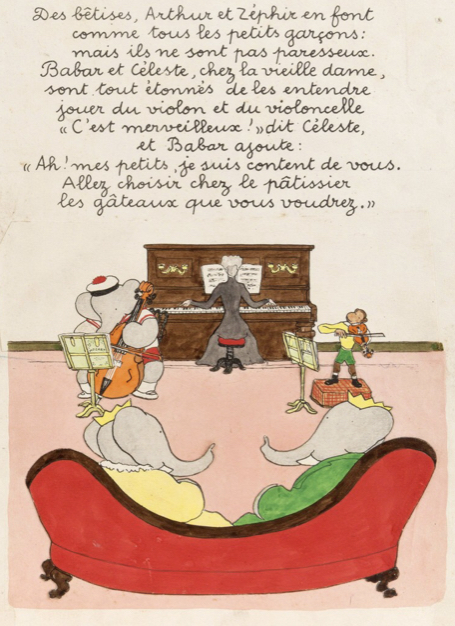 Des bêtises, Arthur et Zéphir en font
comme tous les petits garçons:
mais ils ne sont pas paresseux.
Babar et Céleste, chez la vieille dame,
sont tout étonnés de les entendre
jouer du violon et du violoncelle
« C'est merveilleux!» dit Céleste,
et Babar ajoute:
« Ah! mes petits, je suis content de vous.
Allez choisir chez le pâtissier
les gâteaux que vous voudrez.»